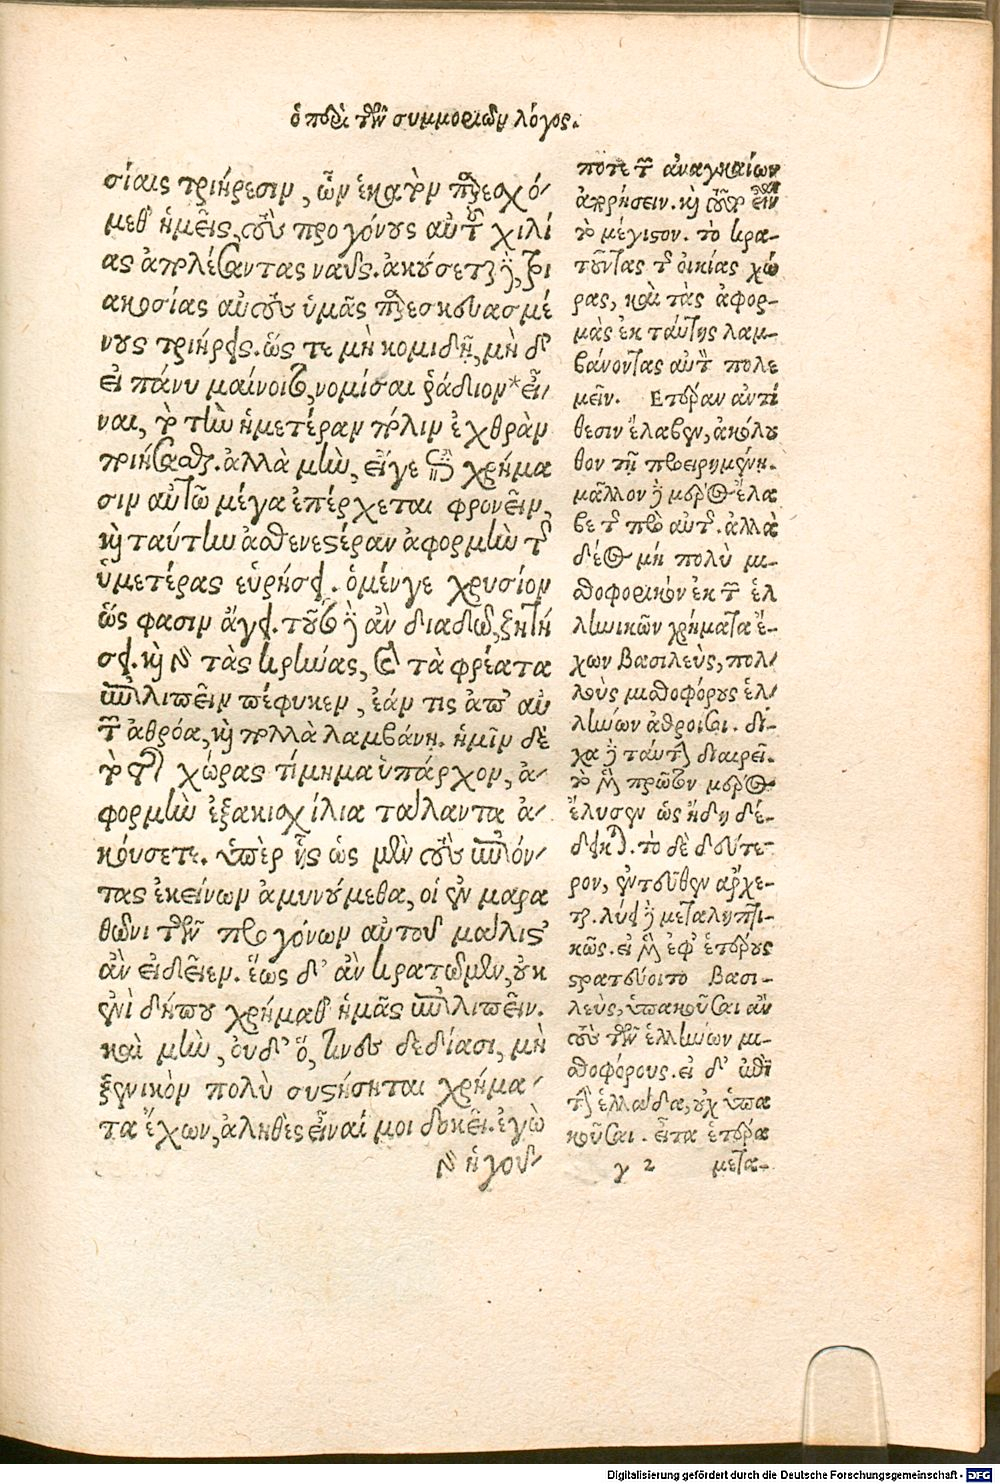 ὁ περὶ τῶν συμμοριῶν λόγος.
σίαις τριήρεσιν, ὧν ἑκατὸν παρεσχό-
μεθ' ἡμεῖς, τοὺς προγόνους αὐτ χιλί
ας ἀπολέσαντας ναῦς. ἀκούσεται δὲ, τρι
ακοσίας αὐτοὺς ὑμᾶς παρεσκευασμέ
νους τριήρεις. ὥς τε μὴ κομιδῇ, μὴ δ'
εἰ πάνυ μαίνοιτο, νομίσαι ῥᾴδιον* εἶ-
ναι, τὸ τὴν ἡμετέραν πόλιν ἐχθρὰν
ποιήσασθαι. ἀλλὰ μὴν, εἴγε χρήμα
σιν αὐτῷ μέγα ἐπέρχεται φρονεῖν,
καὶ ταύτην ἀσθενεστέραν ἀφορμὴν τῆς
ὑμετέρας εὑρήσει. ὁ μένγε χρυσίον
ὥς φασιν ἄγει. τοῦτο δὲ ἂν διαδῷ, ζητή
σει. καὶ γὰρ τὰς κρήνας, καὶ τὰ φρέατα
ἐπιλιπεῖν πέφυκεν, ἐάν τις ἀπ' αὐ
τῶν ἀθρόα, καὶ πολλὰ λαμβάνῃ. ἡμῖν δὲ
τὸ τῆς χώρας τίμημα ὑπάρχον, ἀ-
φορμὴν ἑξακισχίλια τάλαντα ἀ-
κούσετε. ὑπὲρ ἧς ὡς μὲν τοὺς ἐπιόν-
τας ἐκείνων ἀμυνούμεθα, οἱ ἐν μαρα
θῶνι τῶν προγόνων αὐτοῦ μάλιστ'
ἂν εἰδεῖεν. ἕως δ' ἂν κρατῶμεν, οὐκ
ἔνι δήπου χρήμαθ' ἡμᾶς ἐπιλιπεῖν.
καὶ μὴν, οὐδ' ὅ, τινὲς δεδίασι, μὴ
ξενικὸν πολὺ συστήσηται χρήμα-
τα ἔχων, ἀληθὲς εἶναί μοι δοκεῖ. ἐγὼ
γὰρ ἡγοῦ-
ποτε τῶν ἀναγκαίων
ἀπορήσειν. καὶ τοῦτο εἶναι
τὸ μέγιστον. τὸ κρα-
τοῦντας τῆς οἰκίας χώ
ρας, καὶ τὰς ἀφορ-
μὰς ἐκ ταύτης λαμ-
βάνοντας αὐτοῖς πολε
μεῖν. Ετέραν ἀντί
θεσιν ἔλαβεν, ἀκόλου
θον τῇ προειρημένῃ.
μᾶλλον δὲ μέρος ἔλα
βε τῆς πρὸ αὐτῆς. ἀλλὰ
δέος μή πολὺ μι-
σθοφορικόν ἐκ τῶν ἑλ
ληνικῶν χρήματα ἔ-
χων βασιλεὺς, πολ-
λοὺς μισθοφόρους ἑλ-
λήνων ἀθροίσῃ. δί-
χα δὲ ταύτην διαιρεῖ.
τὸ μὲν πρῶτον μέρος
ἔλυσεν ὡς ἤδη δέ-
δεικται. τὸ δὲ δεύτε-
ρον, ἐντεῦθεν ἄρχε-
ται. λύει δὲ μεταληπτι-
κῶς. εἰ μὲν ἐφ' ἑτέρους
στρατεύοιτο βασι-
λεὺς, ὑπακοῦσαι ἂν
τοὺς τῶν ἑλλήνων μι-
σθοφόρους. εἰ δ' ἐπὶ
τὴν ἑλλάδα, οὐχ ὑπα
κοῦσαι. εἶτα ἑτέρα
γ 2 μετα-
Digitalisierung gefördert durch die Deutsche Forschungsgemeinschaft - DFG